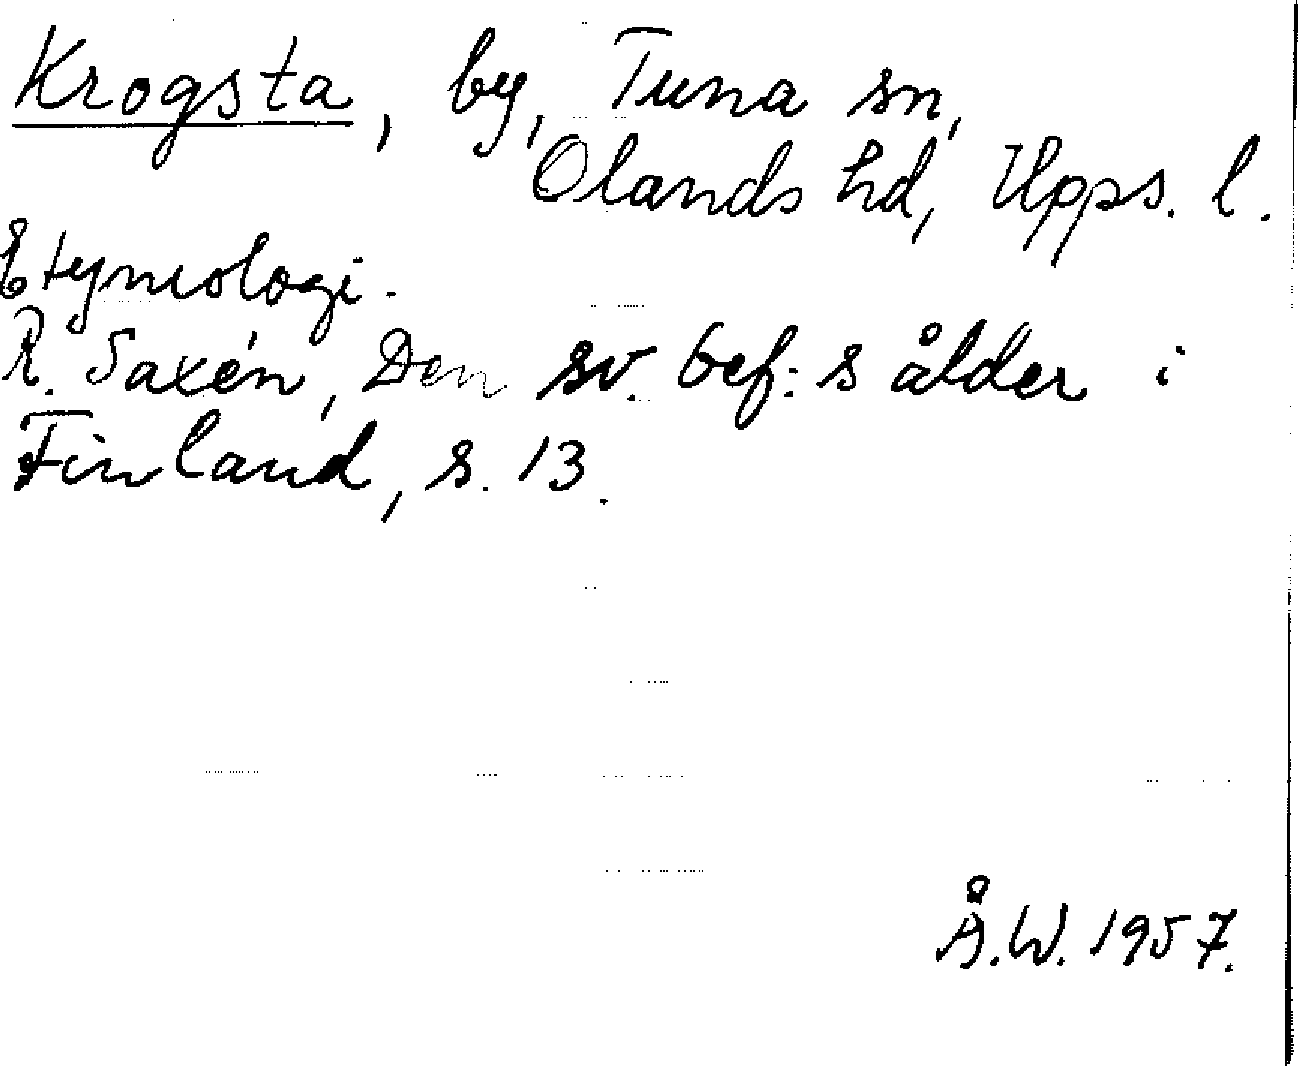 Krogsta, by, Tuna sn,
Olands hd, Upps. l.
Etymologi.
R. Saxén, Den sv. bef:s ålder i
Finland, s. 13.
Å.W. 1957.